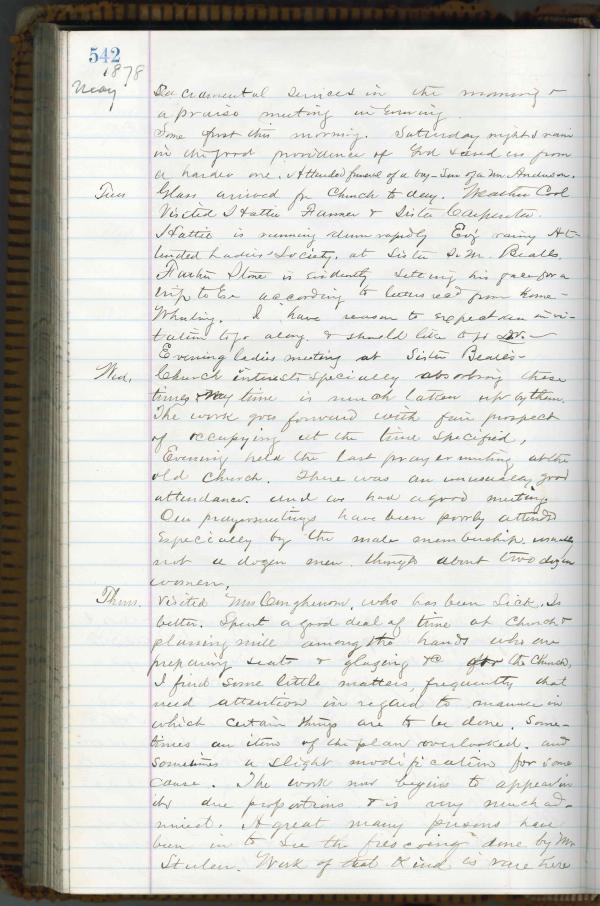 542
1878
May
Sacramental services in the morning &
a praise meeting in Evening.
Some frost this morning. Saturday nights rain
in the good providence of God saved us from
a harder one. Attended funeral of a boy - Son of a Mr. Anderson.
Tues Glass arrived for Church to day. Weather Cool
Visited Hattie Farmer & Sister Carpenter.
Hattie is running down rapidly Eve'g rainy At-
tended Ladies Society, at Sister Bealls.
Stone is evidently setting his face for a
trip to according to letters rec'd from home -
Wheeling. I have reason to expect an invi-
tation to go along. & should like to go
Evening ladies meeting at Sister Bealls -
Wed, Church interests specially absorbing these
times & my time is much taken up by them.
The work goes forward with fair prospect
of occupying at the time specified,
Evening held the last prayer meeting at the
old church. There was an unusually good
attendance. and we had a good meeting
Our prayermeetings have been poorly attended
Especially by the male membership. usually
not a dozen men. though about two dozen
women,
Thurs. Visited Mrs who has been Sick. Is
better. Spent a good deal of time at Church &
plaining mill among the hands who are
preparing seats & glazing &c for the Church,
I find some little matters, frequently that
need attention in regard to manner in
which certain things are to be done. Some-
times an item of the plan overlooked. and
sometimes a slight modification for some
cause. The work now begins to appear in
its due proportions & is very much ad-
mired. A great many persons have
been in to see the frescoing done by Mr
Work of that kind is rare here